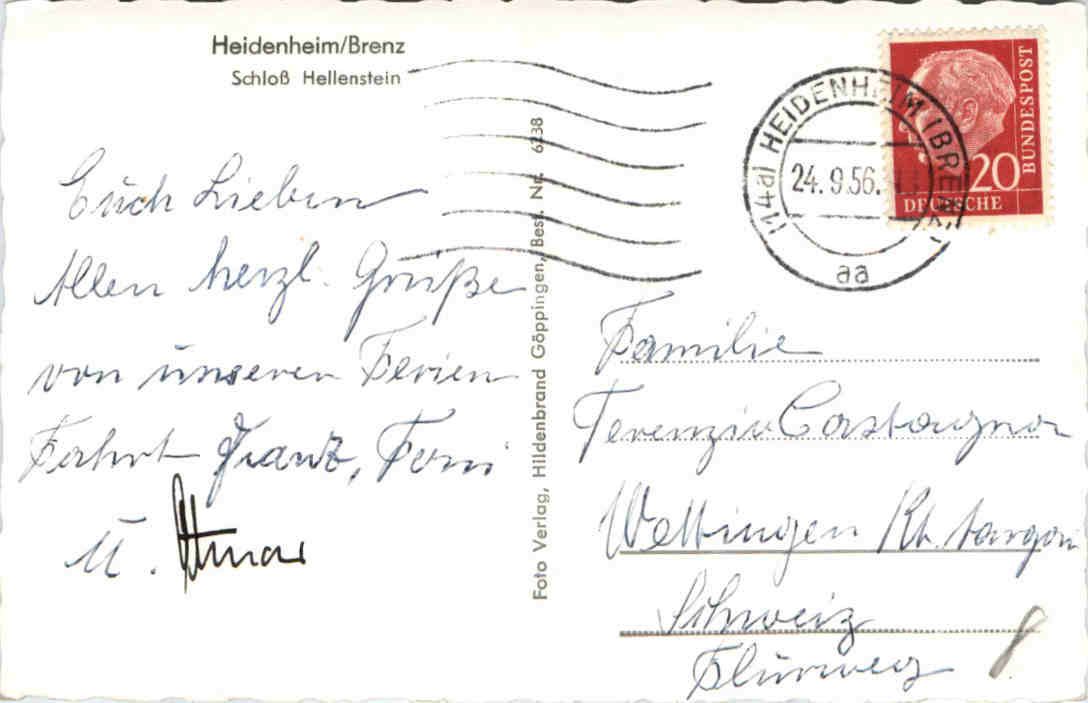 Heidenheim/Brenz
Schloß Hellenstein
Euch Lieben
Allen herzl. Grüße
von unseren Ferien
Fahrt Franz,
u. Otmar
Foto Verlag, Hildenbrand Göppingen, Best. Nr. 6238
(14a) HEIDENHEIM (BRENZ)
24.9.56.
aa
20
DEUTSCHE
BUNDESPOST
Familie
Terenzio Castagnon
Wettingen Kt. Aargau
Schweiz
Flurweg
8